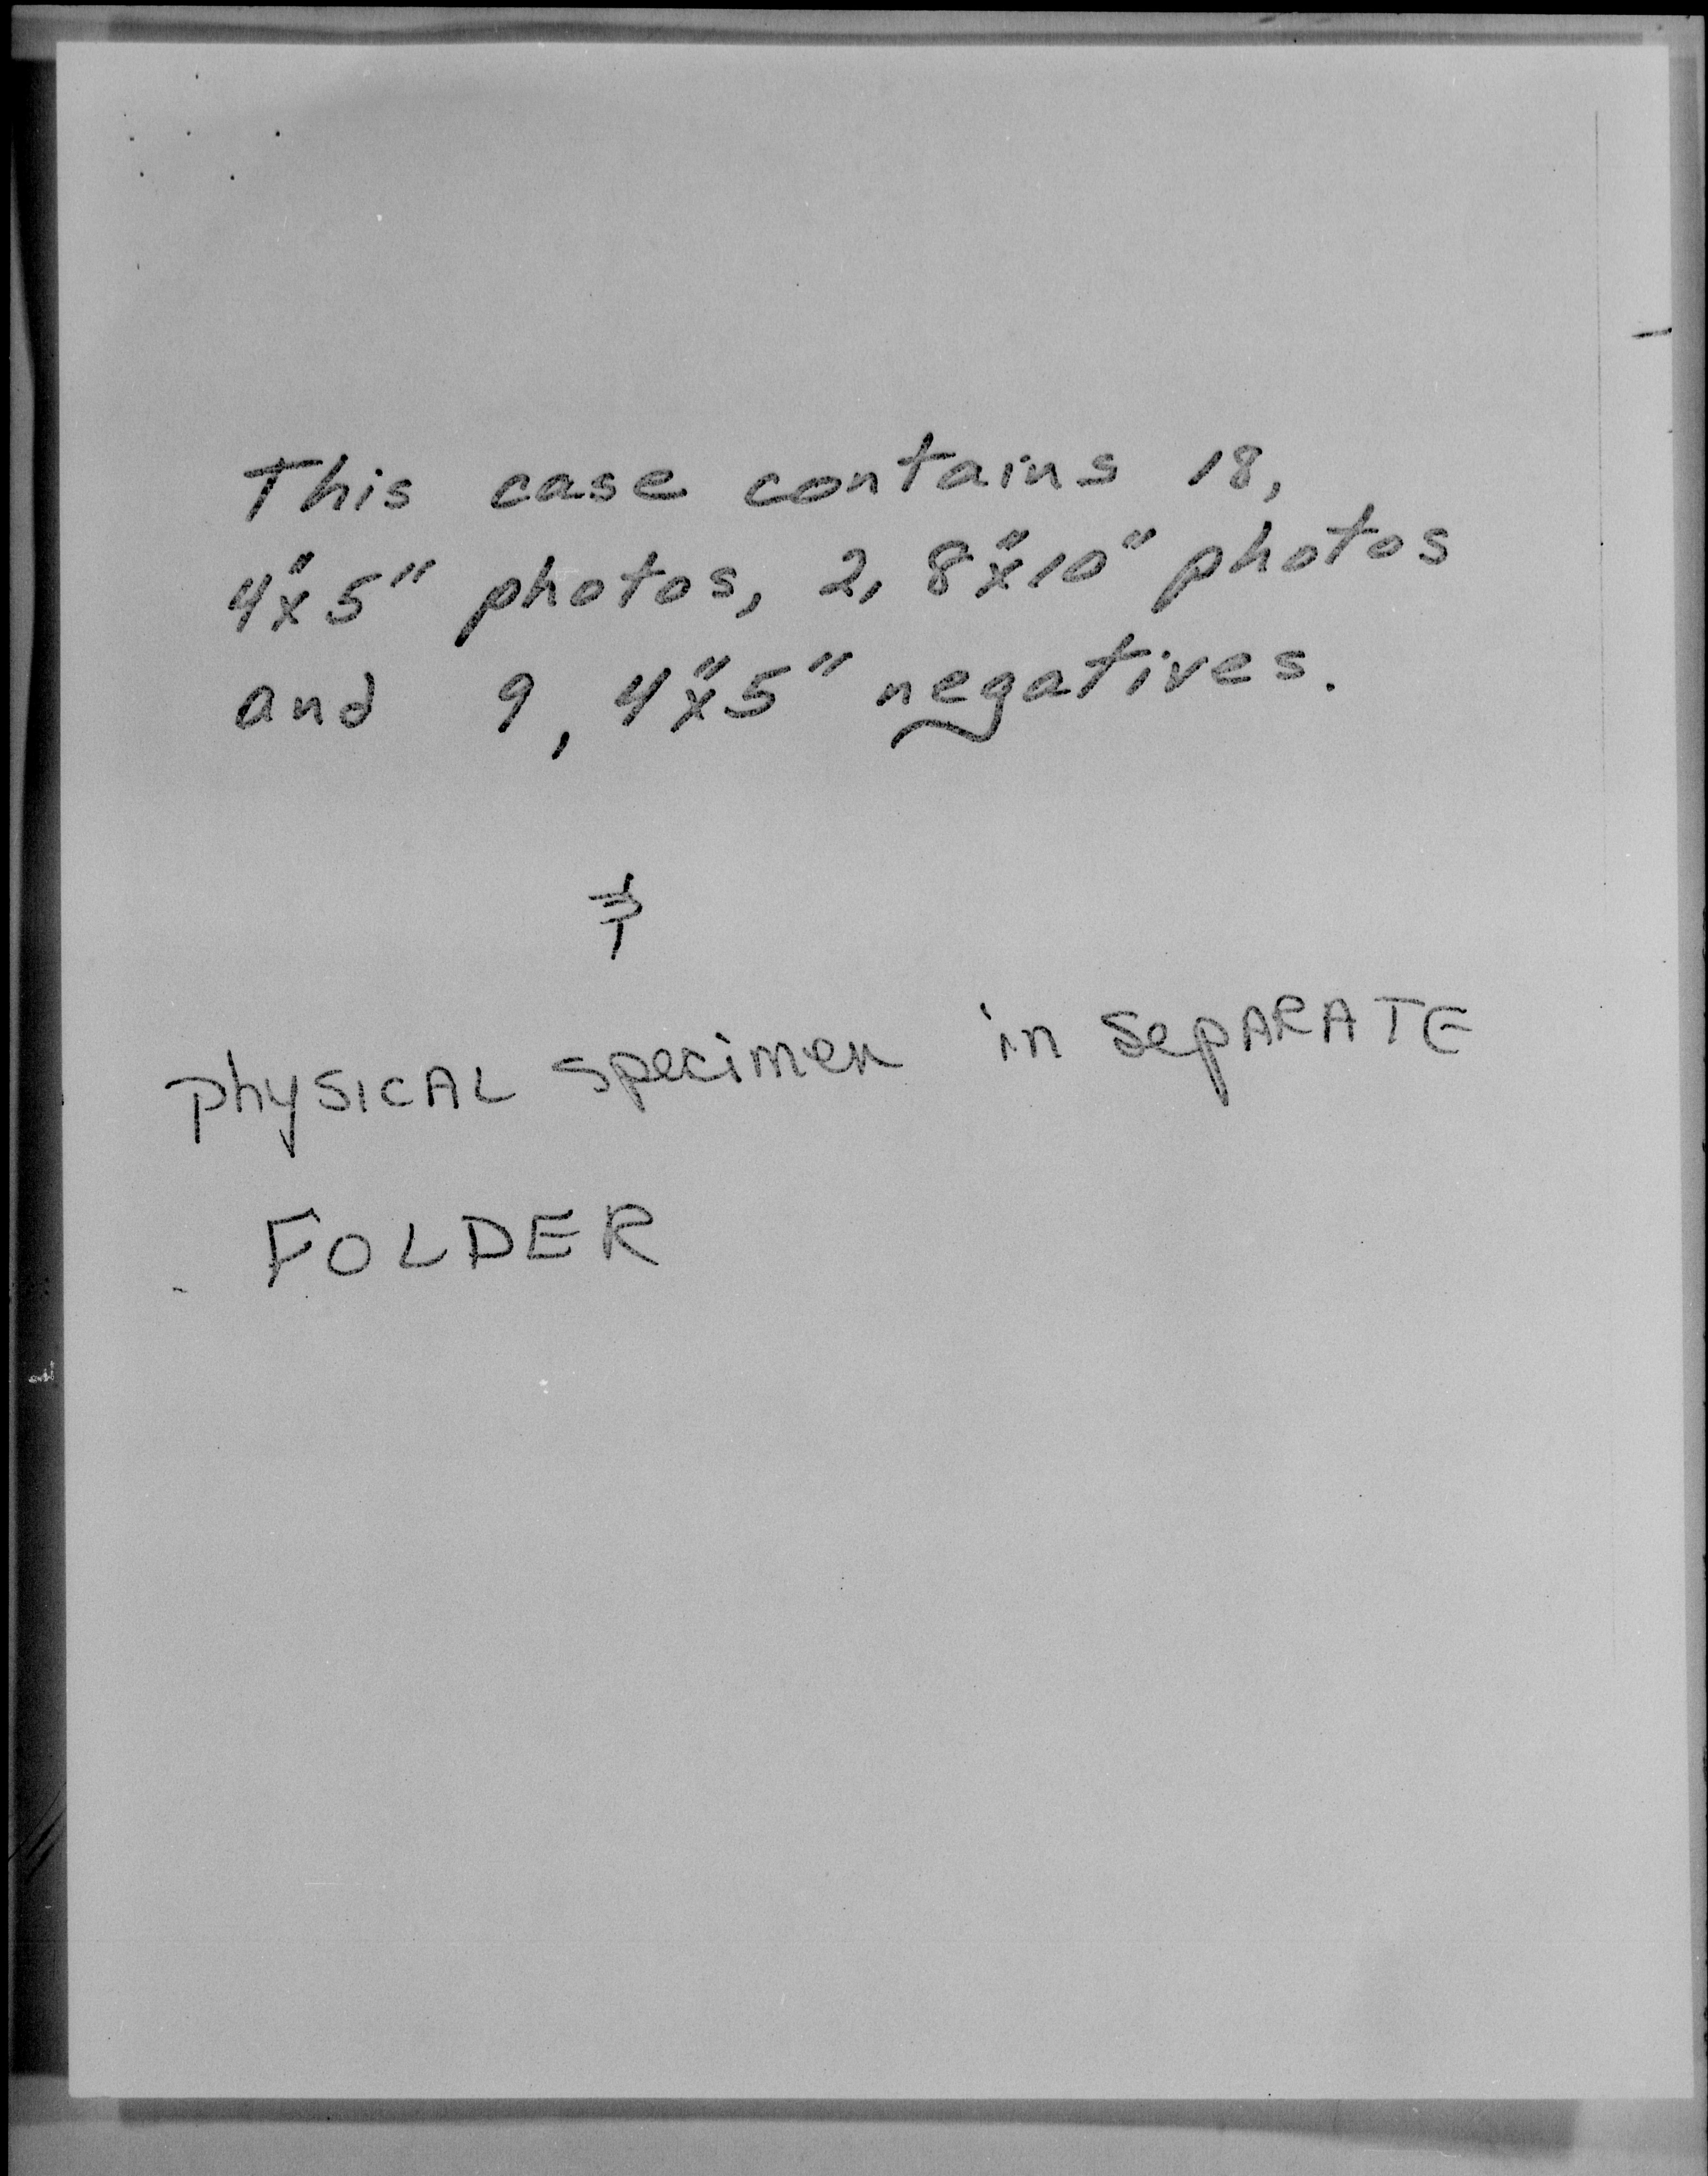 This case contains 18,
4"x5" photos, 2, 8"x10" photos
and 9, 4"x5" negatives.
&
physICAL specimen in SepARATE
FOLDER